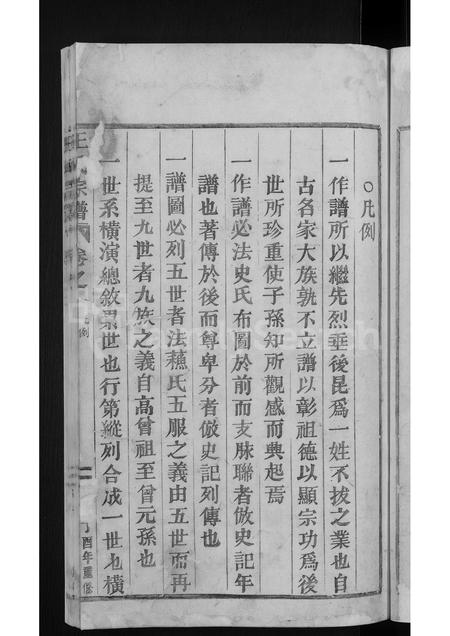 ○凡例
一作譜所以繼先烈垂後昆爲一姓不拔之業也自
古名家大族孰不立譜以彰祖德以顯宗功爲後
世所珍重使子孫知所觀感而興起焉
一作譜必法史氏布圖於前而支脉聯者倣史記年
譜也著傳於後而尊卑分者倣史記列傳也
一譜圖必列五世者法蘓氏五服之義由五世而再
提至九世者九族之義自高曾祖至曾元孫也
一世系橫演總敘累世也行第縱列合成一世也橫
王 宗譜 卷之一 凡例 二 丁酉年重修